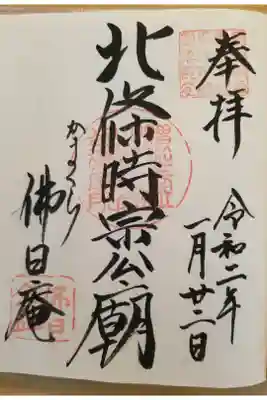 奉拝
令和二年
一月廿二日
北條時宗公廟
かまくら
佛日庵